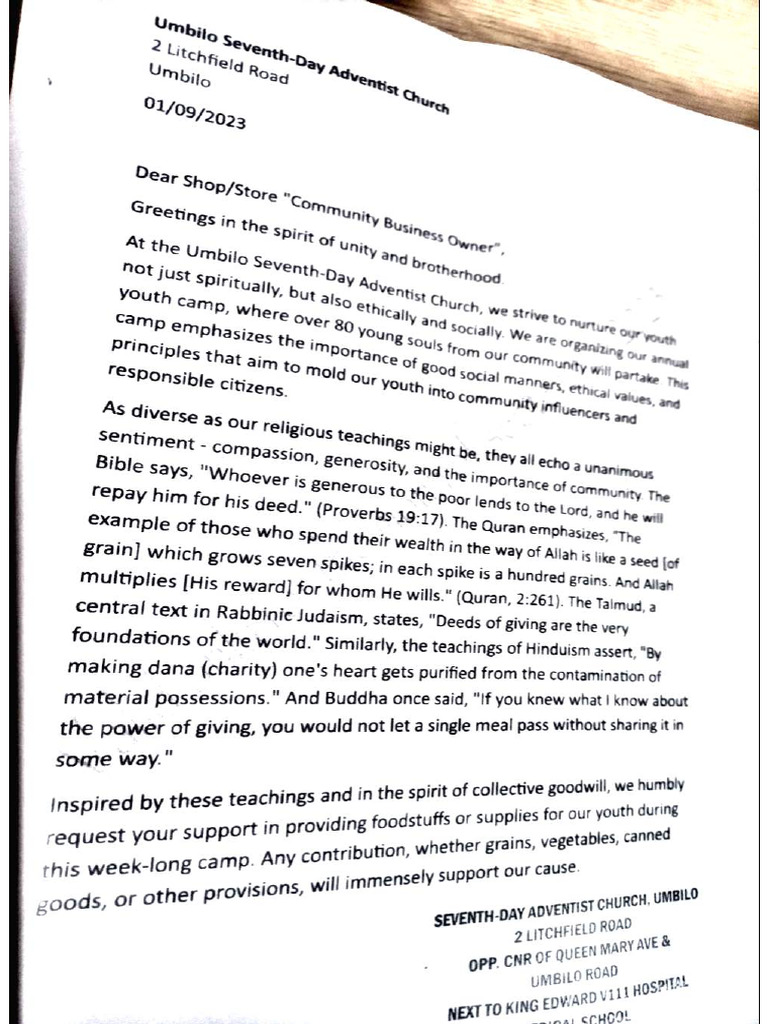 Umbilo Seventh-Day Adventist Church
2 Litchfield Road
Umbilo
01/09/2023
Dear Shop/Store "Community Business Owner",
Greetings in the spirit of unity and brotherhood.
At the Umbilo Seventh-Day Adventist Church, we strive to nurture our youth
not just spiritually, but also ethically and socially. We are organizing our annual
youth camp, where over 80 young souls from our community will partake. This
camp emphasizes the importance of good social manners, ethical values, and
principles that aim to mold our youth into community influencers and
responsible citizens.
As diverse as our religious teachings might be, they all echo a unanimous
sentiment - compassion, generosity, and the importance of community. The
Bible says, "Whoever is generous to the poor lends to the Lord, and he will
repay him for his deed." (Proverbs 19:17). The Quran emphasizes, "The
example of those who spend their wealth in the way of Allah is like a seed [of
grain] which grows seven spikes; in each spike is a hundred grains. And Allah
multiplies [His reward] for whom He wills." (Quran, 2:261). The Talmud, a
central text in Rabbinic Judaism, states, "Deeds of giving are the very
foundations of the world." Similarly, the teachings of Hinduism assert, "By
making dana (charity) one's heart gets purified from the contamination of
material possessions." And Buddha once said, "If you knew what I know about
the power of giving, you would not let a single meal pass without sharing it in
some way."
Inspired by these teachings and in the spirit of collective goodwill, we humbly
request your support in providing foodstuffs or supplies for our youth during
this week-long camp. Any contribution, whether grains, vegetables, canned
goods, or other provisions, will immensely support our cause.
SEVENTH-DAY ADVENTIST CHURCH, UMBILO
2 LITCHFIELD ROAD
OPP. CNR OF QUEEN MARY AVE &
UMBILO ROAD
NEXT TO KING EDWARD V111 HOSPITAL
SCHOOL